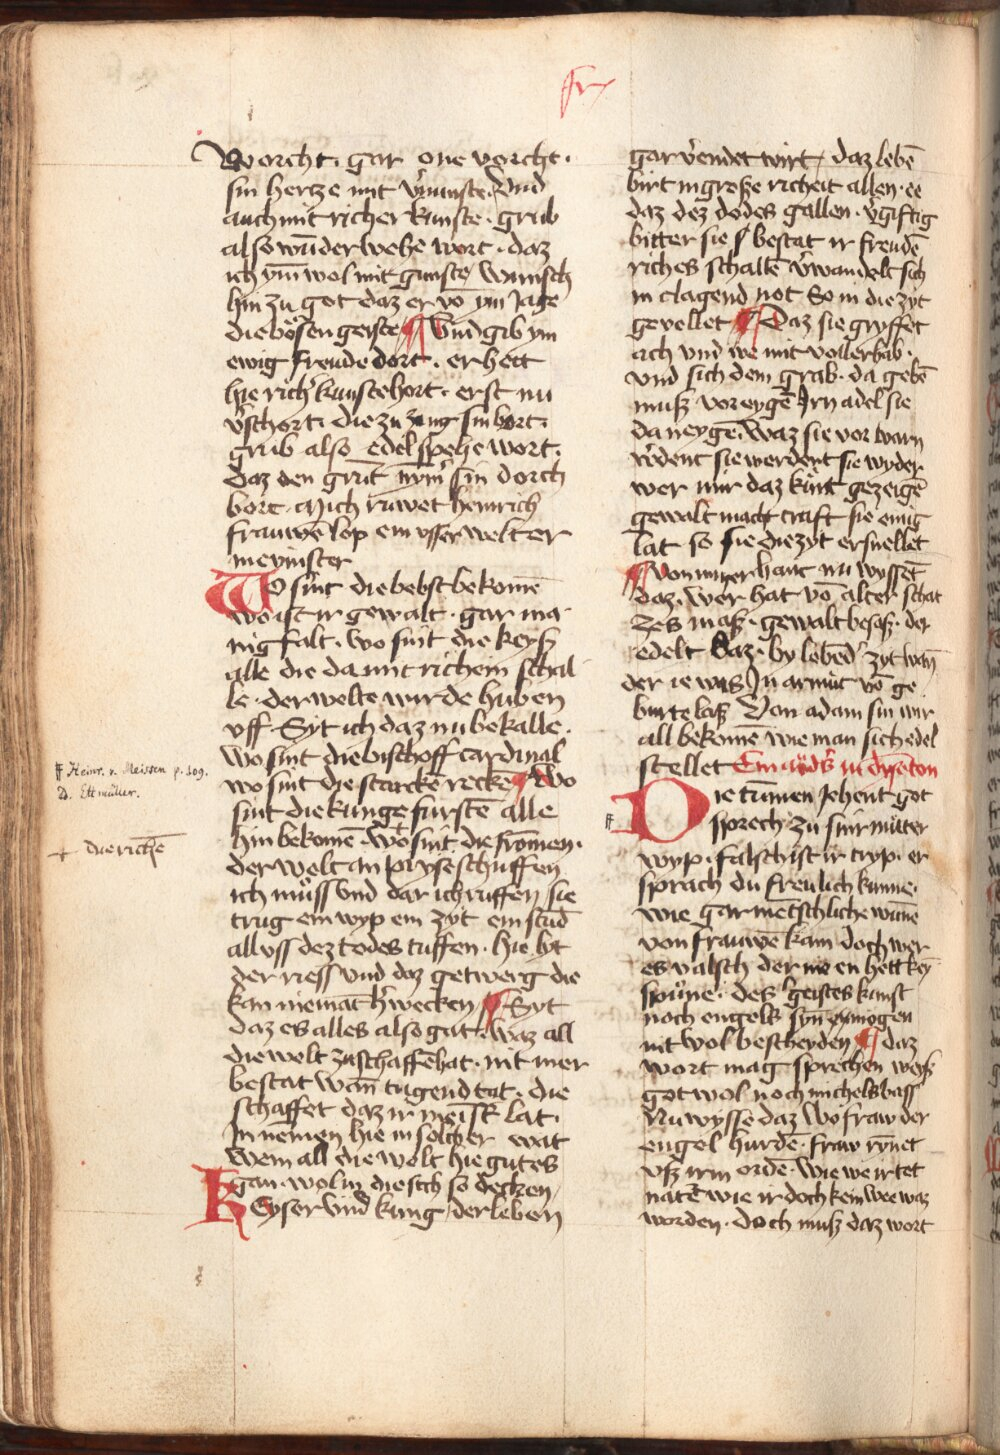 fr
Worcht · gar one vorcht ·
sin hertze mit v̓nunste · Vnd
auch mit richer kunste · grůb
also wūder wehe wort · daz
ich ym̄ wol mit gunste / wunsch
hin zu got daz er vō ym Jage
die bösen geiste ¶ Vnd gib ym
ewig freude dort · er hett
hie rich̓ kunste hort · erst nu
v̓schort · die zu zūg sin bort ·
grub also edel spehe wort ·
daz den grūt nym̓ sin dorch
bort · Mich ruwet heinrich
frauwē lop ein vsser welter
meinster
Wo sint die bebst bekomē
wo ist ir gewalt · gar ma
nig falt · wo sint die keyß
alle die da mit richem schal
le · der welte wirde huben
vff · Syt ich daz nu bekalle ·
Wo sint die bischoff cardinal
wo sint die starckē recke ¶ Wo
sint die kunge furstē alle
hin bekomē · Wo + sint die fromen ·
der welt an pryse schuffen
ich muͦss vnd dar ich ruffen / sie
trug ein wyp ein zyt ein stūd
all vss dez todes tuffen · hie lyt
der riess vnd daz getwerg die
kan niemāt h̓wecken / ¶ Syt
daz es alles also gat · waz all
die welt zu schaffē hat · nit mer
bestat wan̄ tugend tat · die
schaffet daz ir meist̓ lat ·
In nēmen hie in solcher wat
Wem all die welt hie gutes
gan · wol in die sich so decken /
Keyser vnd kung / der leben
ff Heinr. v. Meissen p. 109.
D. Ettmüller.
+ die richē
gar v̓endet wirt / daz lebē
birt in große richeit allen · ee
daz dez dodes gallen · v̓giftig
bitter sie / bestat ir freudē
riches schallē v̓wandelt sich
in clagend not So in die zyt
gevellet ¶ Daz sie gryffet
ach vnd we mit voller hab ·
vnd sich dem grab · da gebē
muß vor eygē Irn adel sie
da neygē · Waz sie vor warn
w̓dent sie werdent sie wyder
wer mir daz kūnt gezeigē
gewalt macht craft sie einig
lat so sie die zyt ersnellet
¶ Von mīner hant nu wyssēt
daz · wer hat vō alter schat
zes maß · gewalt besaß · der
edelt daz · by lebēd̓ zyt wan̄
der ie was In armūt vō ge
burte laß Von adam sin wir
all bekomē wie man sich edel
stellet Ein and̓s in dysē ton
Die tūmen Jehent got
ff sprech zu sinr mūter
wyp · falsch ist ir tryp · er
sprach du freulich kunne ·
wie gar mētschliche wūne
von frauwē kam doch wer
es valsch der me en hett key
spuͦne · des geistes kunst
noch engels syn en mogen
nit wol bescheyden ¶ daz
wort mag sprechen weß
got wol noch michels bass
Nu wysse daz Wo fraw der
engel hurdē · fraw rynet
vß irm ordē · wie we ir tet
natē wie ir doch kein wee waz
worden · doch muß daz wort